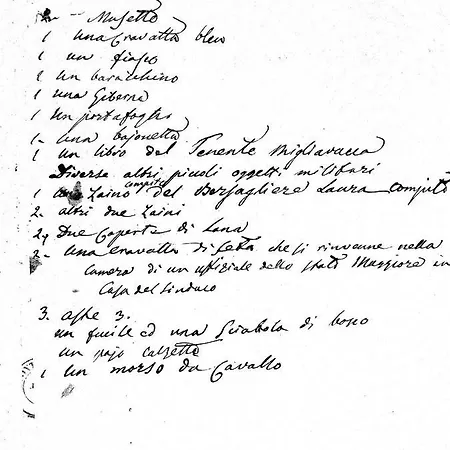 2 - Musetto
1 una Cravatta bleu
1 un fiasco
1 Un baracchino
1 una Giberna
1 Un portafoglio
1 - una bajonetta
1 un libro del Tenente Migliavacca
Diverse altri piccoli oggetti militari
1 uno Zaino compito del Bersagliere Laura compito
2 - altri due Zaini
2, Due Coperte di Lana
2 - una Cravatta di seta che si rinvenne nella
Camera di un uffiziale dello Stato Maggiore in
Casa del Sindaco
3. aste 3.
un fucile ed una Sciabola di bosco
un pajo Calzette
1 un morso da Cavallo